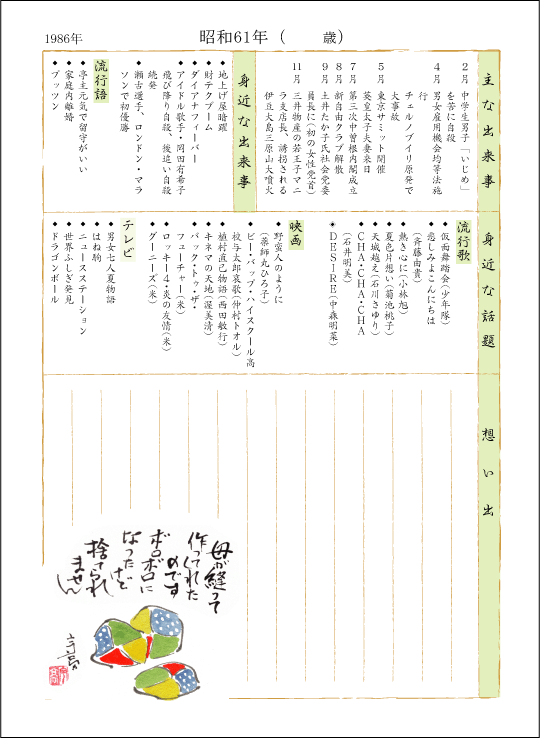 1986年
昭和61年（　　歳）
主な出来事
２月　中学生男子「いじめ」
を苦に自殺
４月　男女雇用機会均等法施
行
チェルノブイリ原発で
大事故
５月　東京サミット開催
英皇太子夫妻来日
７月　第三次中曽根内閣成立
８月　新自由クラブ解散
９月　土井たか子氏社会党委
員長に（初の女性党首）
11月　三井物産の若王子マニ
ラ支店長、誘拐される
伊豆大島三原山大噴火
身近な出来事
◆地上げ屋暗躍
◆財テクブーム
◆ダイアナフィーバー
◆アイドル歌手・岡田有希子
飛び降り自殺、後追い自殺
続発
◆瀬古選手、ロンドン・マラ
ソンで初優勝
流行語
◆亭主元気で留守がいい
◆家庭内離婚
◆プッツン
身近な話題
流行歌
◆仮面舞踏会（少年隊）
◆悲しみよこんにちは
（斉藤由貴）
◆熱き心に（小林旭）
◆夏色片想い（菊池桃子）
◆天城越え（石川さゆり）
◆CHA・CHA・CHA
（石井明美）
◆DESIRE（中森明菜）
映画
◆野蛮人のように
（薬師丸ひろ子）
◆ビー・バップ・ハイスクール高
校与太郎哀歌（仲村トオル）
◆植村直己物語（西田敏行）
◆キネマの天地（渥美清）
◆バック・トゥ・ザ・
フューチャー（米）
◆ロッキー４・炎の友情（米）
◆グーニーズ（米）
テレビ
◆男女七人夏物語
◆はね駒
◆ニュースステーション
◆世界ふしぎ発見
◆ドラゴンボール
想い出
母が縫って
作ってくれた
のです
ボロボロに
なったけど
捨てられ
ません